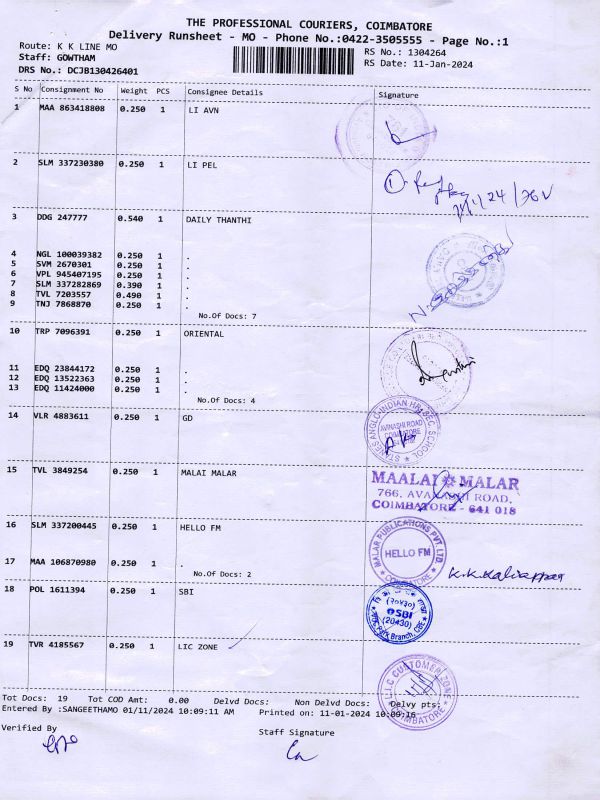 THE PROFESSIONAL COURIERS, COIMBATORE
Delivery Runsheet - MO - Phone No.:0422-3505555 - Page No.:1
Route: K K LINE MO
RS No.: 1304264
Staff: GOWTHAM
RS Date: 11-Jan-2024
DRS No.: DCJB130426401
S No Consignment No Weight PCS Consignee Details Signature
1 MAA 863418808 0.250 1 LI AVN
2 SLM 337230380 0.250 1 LI PEL
3 DDG 247777 0.540 1 DAILY THANTHI
4 NGL 100039382 0.250 1 .
5 SVM 2670301 0.250 1 .
6 VPL 945407195 0.250 1 .
7 SLM 337282869 0.390 1 .
8 TVL 7203557 0.490 1 .
9 TNJ 7868870 0.250 1 .
No.Of Docs: 7
10 TRP 7096391 0.250 1 ORIENTAL
11 EDQ 23844172 0.250 1 .
12 EDQ 13522363 0.250 1 .
13 EDQ 11424000 0.250 1 .
No.Of Docs: 4
14 VLR 4883611 0.250 1 GD
ANGLO-INDIAN HR. SEC. SCHOOL
AVINASHI ROAD
COIMBATORE
15 TVL 3849254 0.250 1 MALAI MALAR
MAALAI MALAR
766, AVANASHI ROAD,
COIMBATORE - 641 018
16 SLM 337200445 0.250 1 HELLO FM
MALAR PUBLICATIONS PVT. LTD.
HELLO FM
COIMBATORE
17 MAA 106870980 0.250 1 .
No.Of Docs: 2
18 POL 1611394 0.250 1 SBI
(२०४३०)
SBI
(20430)
Park Branch, CBE
19 TVR 4185567 0.250 1 LIC ZONE
L.I.C CUSTOMER ZONE
COIMBATORE
Tot Docs: 19 Tot COD Amt: 0.00 Delvd Docs: Non Delvd Docs: Delvy pts:
Entered By :SANGEETHAMO 01/11/2024 10:09:11 AM Printed on: 11-01-2024 10:09:16
Verified By
Staff Signature